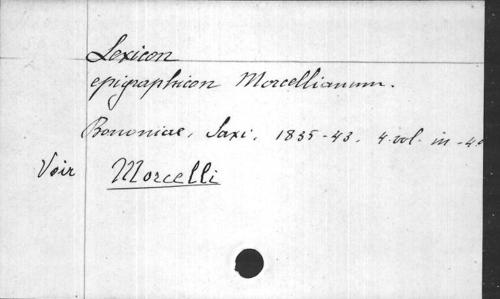 Lexicon
epigraphicon Morcellianum.
Bononiae, Saxi, 1835-43, 4 vol. in-4o
Voir Morcelli